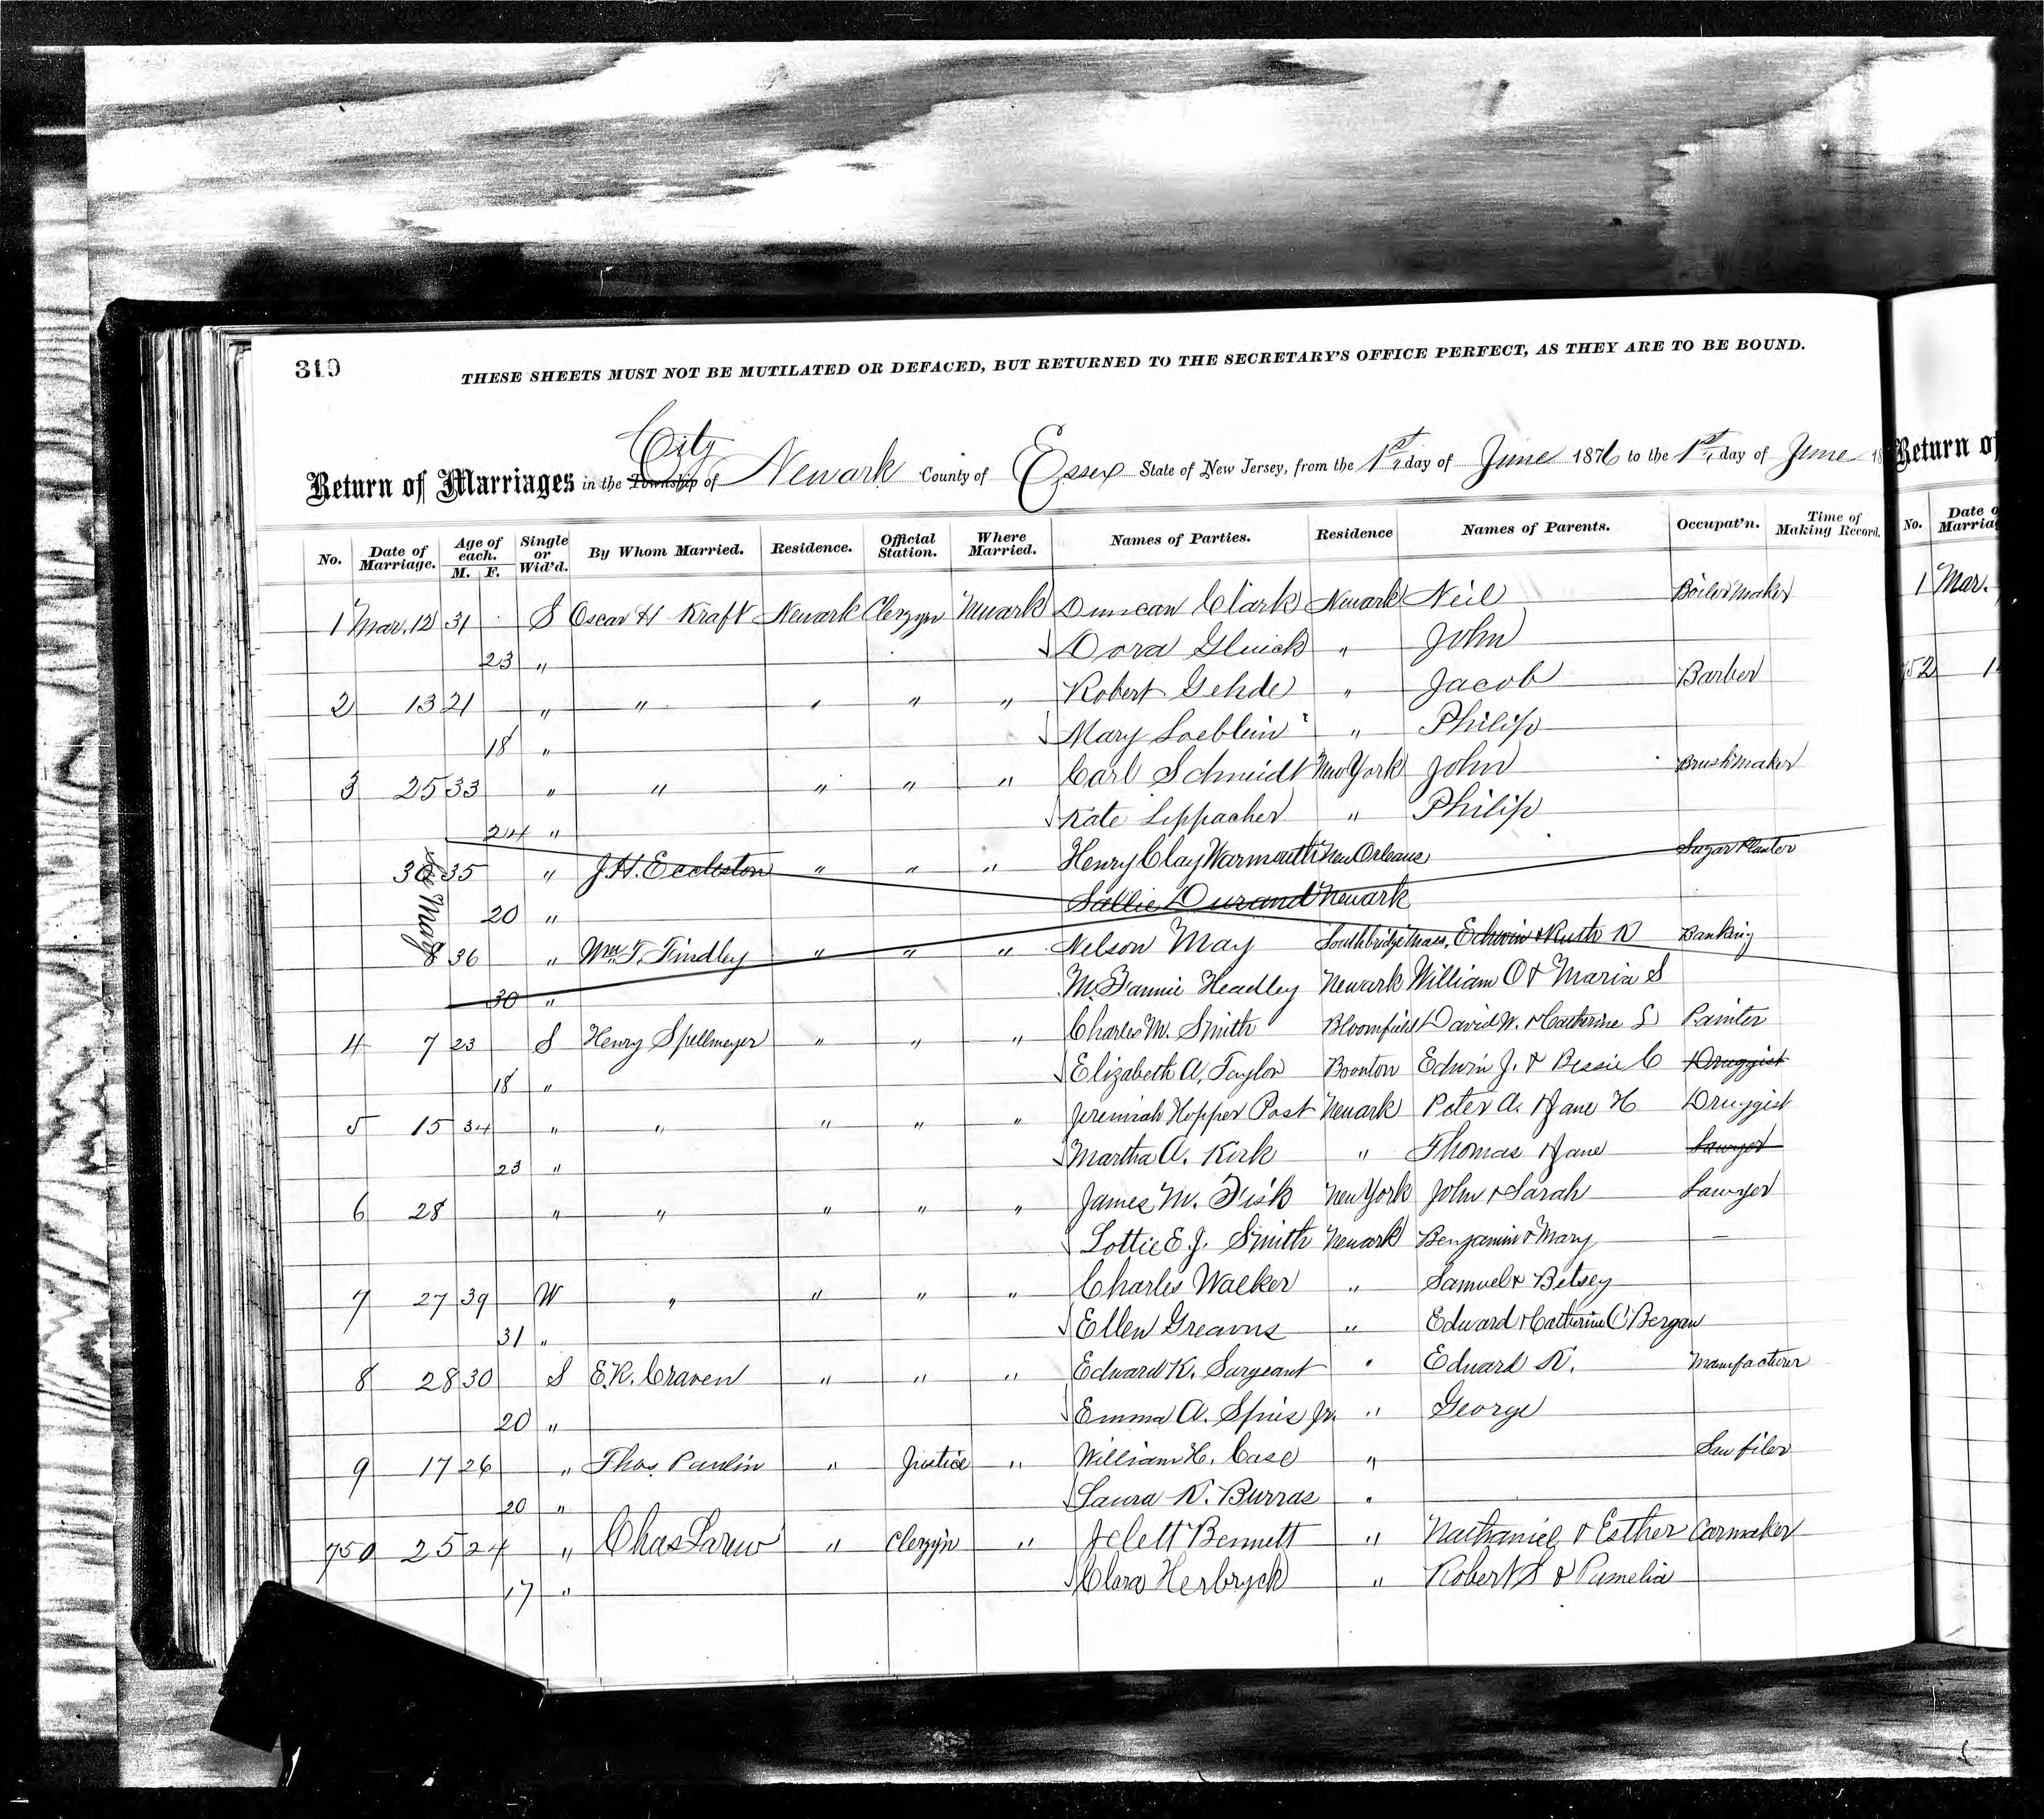 319
THESE SHEETS MUST NOT BE MUTILATED OR DEFACED, BUT RETURNED TO THE SECRETARY'S OFFICE PERFECT, AS THEY ARE TO BE BOUND.
City
Return of Marriages in the Township of Newark County of Essex State of New Jersey, from the 1st day of June 1876 to the 1st day of June 18
No. Date of Marriage. Age of each. M. F. Single or Wid'd. By Whom Married. Residence. Official Station. Where Married. Names of Parties. Residence Names of Parents. Occupat'n. Time of Making Record.
1 Mar. 12 31 S Oscar H Kraft Newark Clergyn Newark Duncan Clark Newark Neil Boiler Maker
23 " Dora Gluick " John
2 13 21 " " " " " Robert Gehde " Jacob Barber
18 " Mary Loeblein " Philip
3 25 33 " " " " " Carl Schmidt New York John Brush Maker
24 " Kate Leppacher " Philip
30 35 " J. H. Eccleston " " " Henry Clay Warmouth New Orleans Sugar Planter
20 " Sallie Durand Newark
May 8 36 " Wm. T. Findley " " " Nelson May Southbridge Mass. Edwin & Ruth R Banking
30 " M. Fannie Headley Newark William O & Maria S
4 7 23 S Henry Spellmeyer " " " Charles M. Smith Bloomfield David W. & Catherine S Painter
18 " Elizabeth A. Taylor Boonton Edwin J. & Bessie C Druggist
5 15 34 " " " " " Jeremiah Hopper Post Newark Peter A. & Jane H Druggist
23 " Martha A. Kirk " Thomas & Jane Lawyer
6 28 " " " " " James M. Fisk New York John & Sarah Lawyer
Lottie E. J. Smith Newark Benjamin & Mary —
7 27 39 W " " " " Charles Walker " Samuel & Betsey
31 " Ellen Greavns " Edward & Catherine O'Bergan
8 28 30 S E. R. Craven " " " Edward K. Sargeant " Edward R. Manufacturer
20 " Emma A. Spies Jr. " George
9 17 26 " Thos. Paulin " Justice " William H. Case " Saw filer
20 " Laura R. Burras "
750 25 24 " Chas Larew " Clergyn " J Clett Bennett " Nathaniel & Esther Carmaker
17 " Clara Herbryck " Robert S & Pamelia
Return of
No. Date o Marria
1 Mar.
52 1